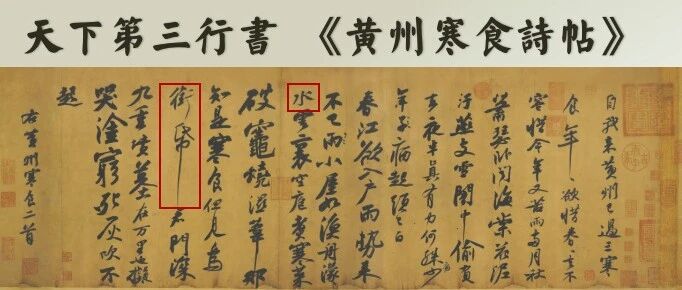 天下第三行書 《黄州寒食詩帖》
自我來黃州已過三寒
食年〻欲惜春春去不
容惜今年又苦雨兩月秋
蕭瑟臥聞海棠花泥
汙燕支雪闇中偷負
去夜半真有力何殊少
年子病起頭已白
春江欲入戶雨勢來
不已雨小屋如漁舟濛〻
水雲裏空庖煮寒菜
破竈燒濕葦那
知是寒食但見烏
銜帋君門深
九重墳墓在万里也擬
哭塗窮死灰吹不
起
右黃州寒食二首